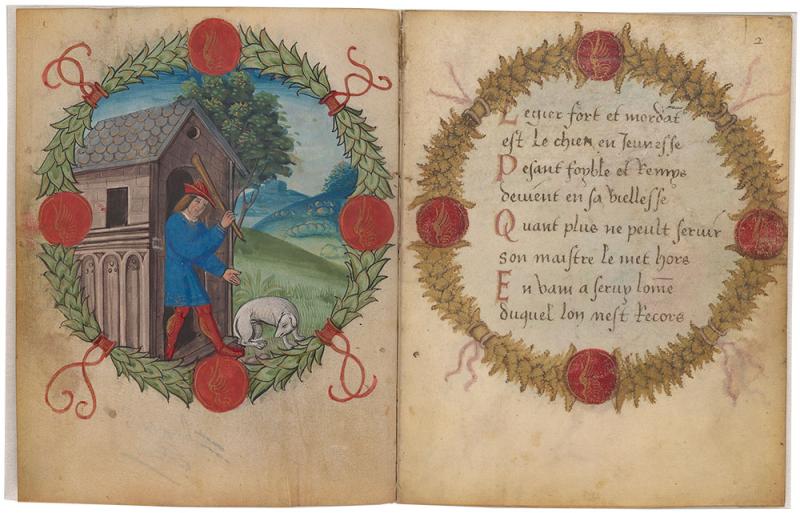 2
Legier fort et mordãt
est le chien en Jeunesse
Pesant foyble et Remps
deuient en sa viellesse
Quant plus ne peult seruir
son maistre le met hors
En vain a seruy lõme
duquel lon nest Recors